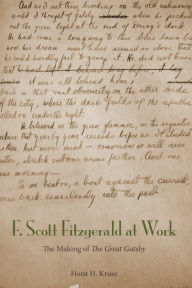 And as I sat there brooding on the old unknown
world I thought of Gatsby's when he picked
out the green light at the end of Daisy's dock.
He had come a long way to this blue lawn
dream must have seemed so close that
he could hardly fail to grasp it. He did not know
that it was all behind him,
back in that vast obscurity on the other side
of the city, where the dark fields of the republic
rolled on under the night.
He believed in the green glimmer, in the orgastic
future that year by year recedes before us. It eluded
us then but never mind – tomorrow we will run
faster, stretch out our arms farther. And one
morning —
So we beat on, a boat against the current,
borne back ceaselessly into the past
F. Scott Fitzgerald at Work
The Making of The Great Gatsby
Horst H. Kruse